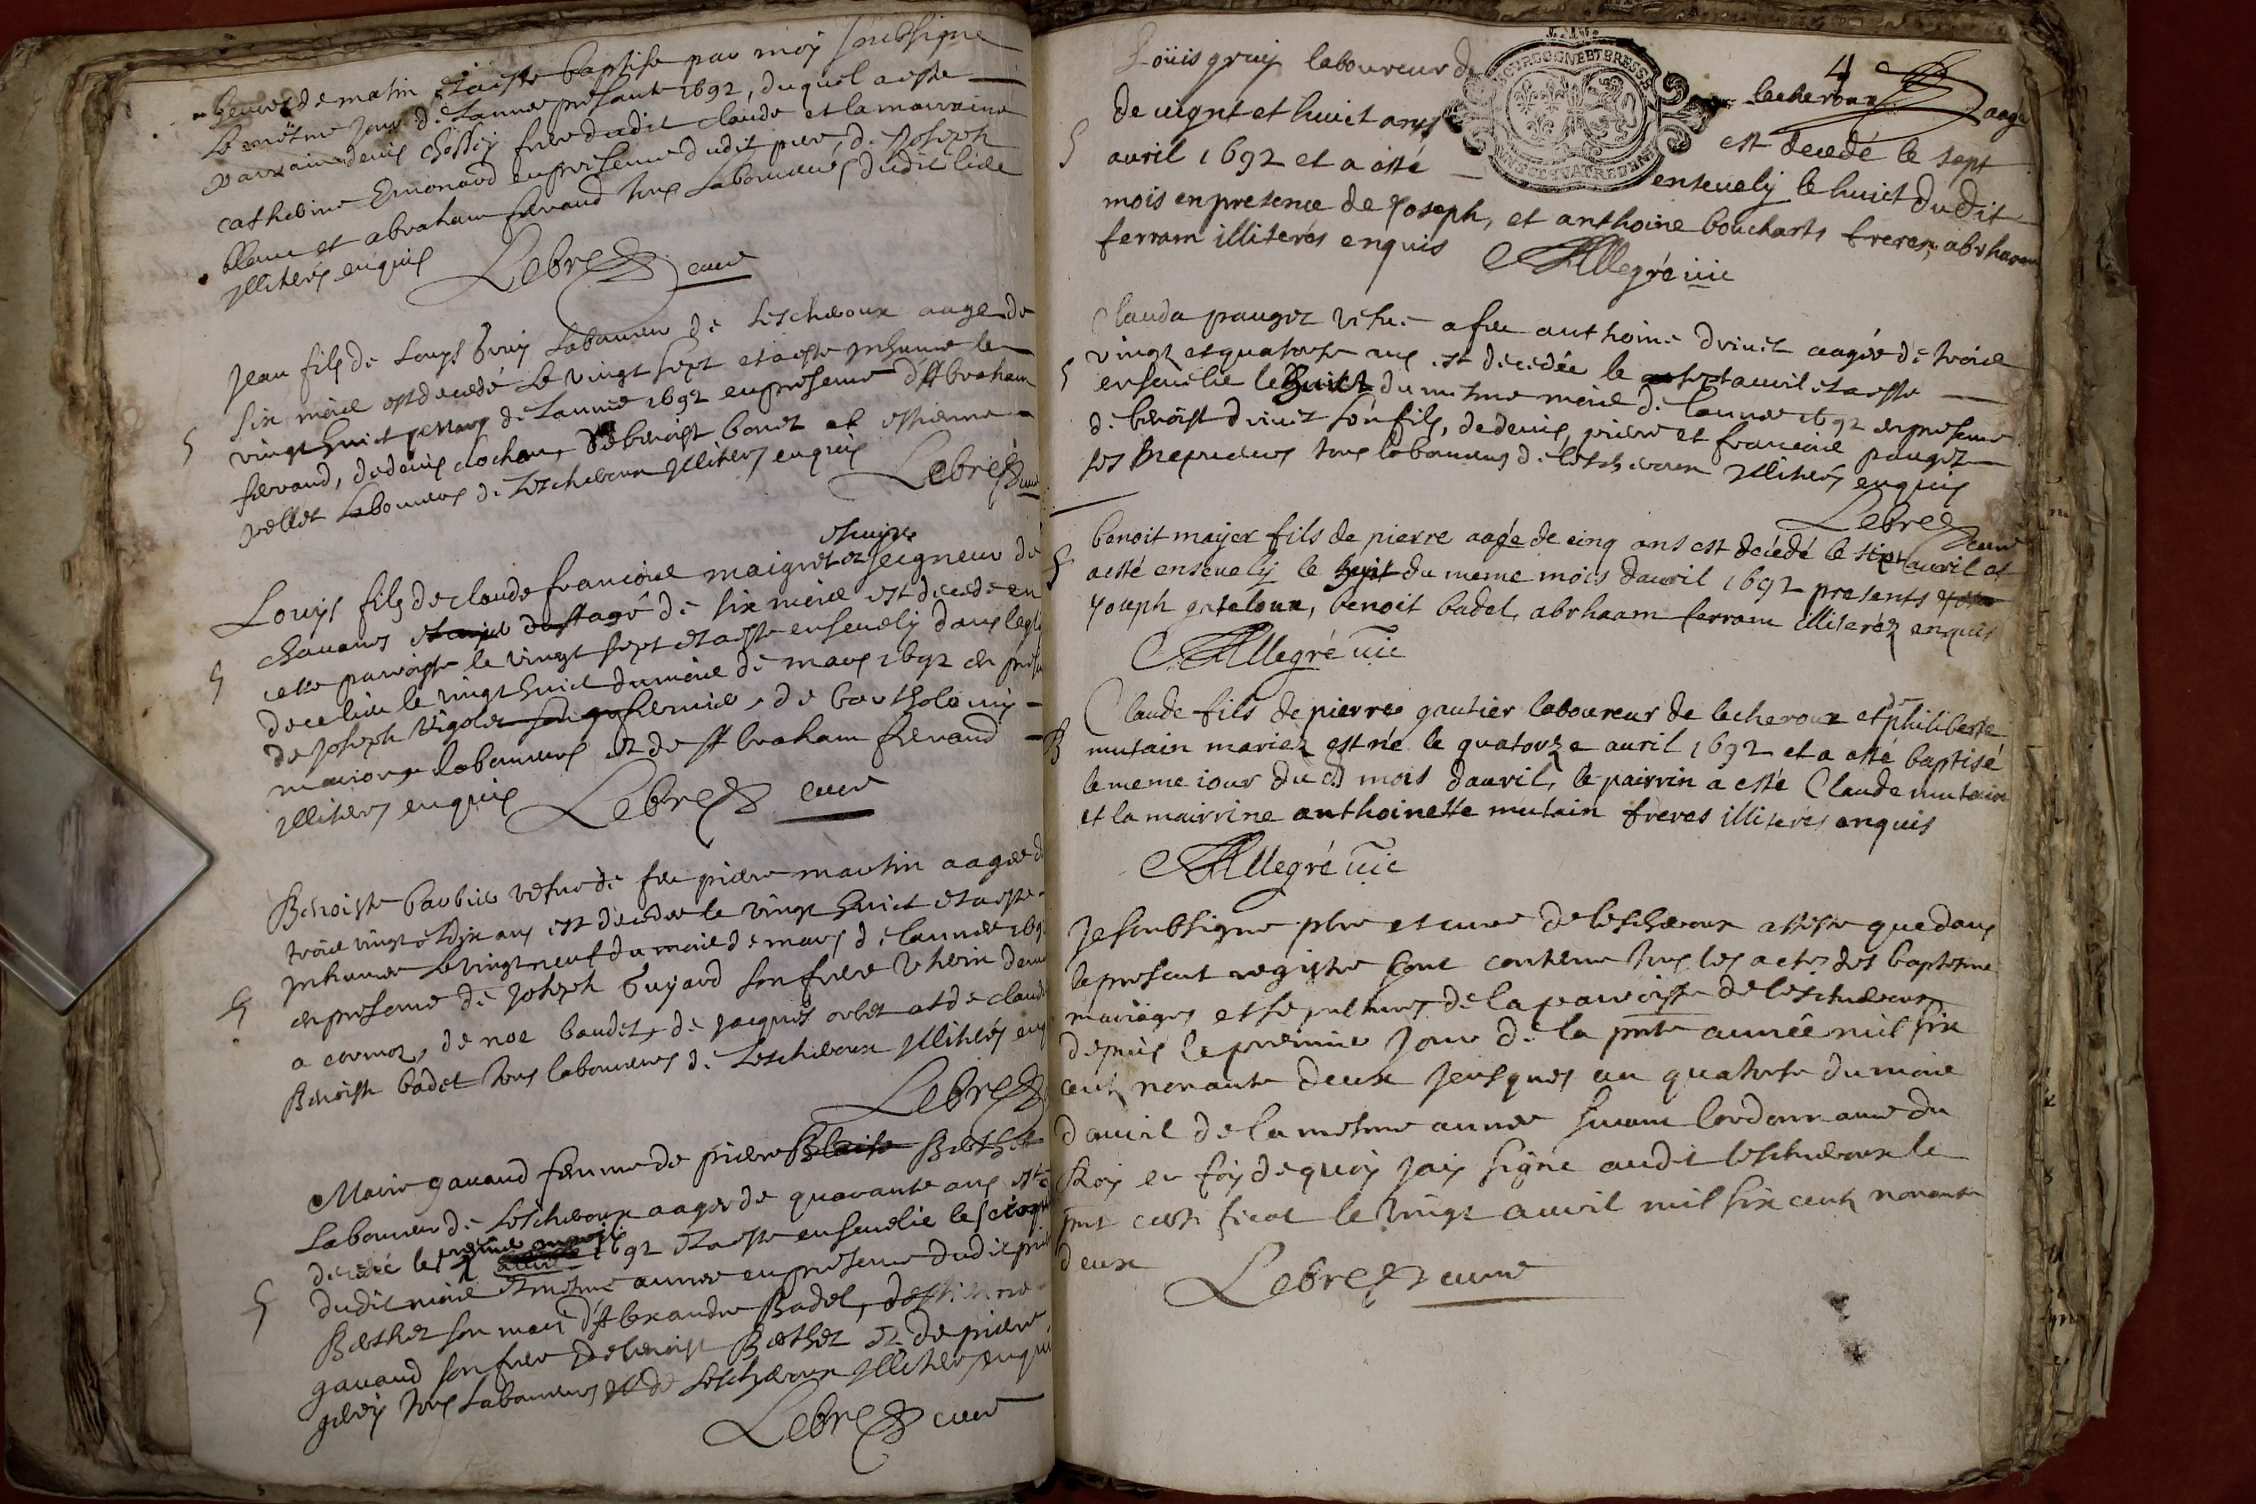 heures de matin et a este baptise par moy soubsigne
le mesme jour de lannee presante 1692, duquel a este
parrain denis frere dudit claude et la marraine
catherine Emonard en presence dudit pere, de Joseph
blanc et abraham feraud tous laboureurs dudit lieu
illiterés enquis
Lebre curé
Jean fils de Louys Gruy Laboureur de Lescheroux aage de
six mois est decedé le vingt sept et a este inhume le
vingt huict de lannee 1692 en presence d'Abraham
feraud, de denis cochon, de benoist bonet et estienne
vellet Laboureurs de Lescheroux illiterés enquis
Lebre curé
Louys fils de claude francois maigret et seigneur de
chavanes aagé de six mois est decede en
cette parroisse le vingt sept et a este ensevely dans leglise
de ce lieu le vingt huict du mois de mars 1692 en presence
de Joseph Vigolet de bartholomy
laboureurs et de Abraham feraud
illiterés enquis Lebre curé
Benoiste barbier vefve de feu pierre martin aagee de
trois vingt et dix ans est decedee le vingt huict et a este
inhumee le vingt neuf du mois de mars de lannee 1692
en presence de Joseph Guyard son frere
a cormoz, de noe baudet, de jacques orbet et de claude
Benoist badet tous laboureurs de Lescheroux illiterés enquis
Lebre
Marie gavand femme de pierre Blaise Bethet
Laboureur de Lescheroux aagee de quarante ans est
decedee le 1692 et a este ensevelie le
dudit mois et mesme annee en presence dudit pierre
Bethet son mari d'Alexandre Badel, destienne
gavand son frere de benoist Bethet et de pierre
tous Laboureurs de Lescheroux illiterés enquis
Lebre curé
4
Loüis gruy laboureur de lecheroux aagé
de vignt et huict ans est decedé le sept
S avril 1692 et a esté ensevely le huict dudit
mois en presence de Joseph, et anthoine bouchars freres, abrhaam
ferram illiterés enquis
Allegré vic
BOURGOGNE ET BRESSE
Clauda pauget vefve a feu anthoine drivet aagée de trois
vingt et quatorse ans est decedée le sept avril et a este
S ensevelie le huict du mesme mois de lannee 1692 en presence
de benoist drivet son fils, de denis, pierre et francois pauget
ses nepveux tous laboureurs de lescheroux illiterés enquis
Lebre curé
benoit mayer fils de pierre aagé de cinq ans est decedé le sept avril et
S a esté ensevely le huit du meme mois davril 1692 presents
Joseph gateloux, benoit badel, abrhaam ferram illiteréz enquis
Allegré vic
Claude fils de pierre gautier laboureur de lecheroux et de philiberte
B mutain mariez est né le quatorze avril 1692 et a esté baptisé
le meme iour dud mois davril, le pairrin a esté Claude mutain
et la mairrine anthoinette mutain freres illiteres enquis
Allegré vic
Je soubsigne pbre et curé de lescheroux atteste que dans
le present registre sont contenu tous les actes des baptesme
mariages et sepultures de la parroisse de lescheroux
depuis le premier jour de la pnte année mil six
cent nonante deux jeusques au quatorse du mois
davril de la mesme annee suivant lordonnance du
Roy en foy de quoy jay signé audit lescheroux le
pnt certificat le vingt avril mil six cent nonante
deux
Lebre curé